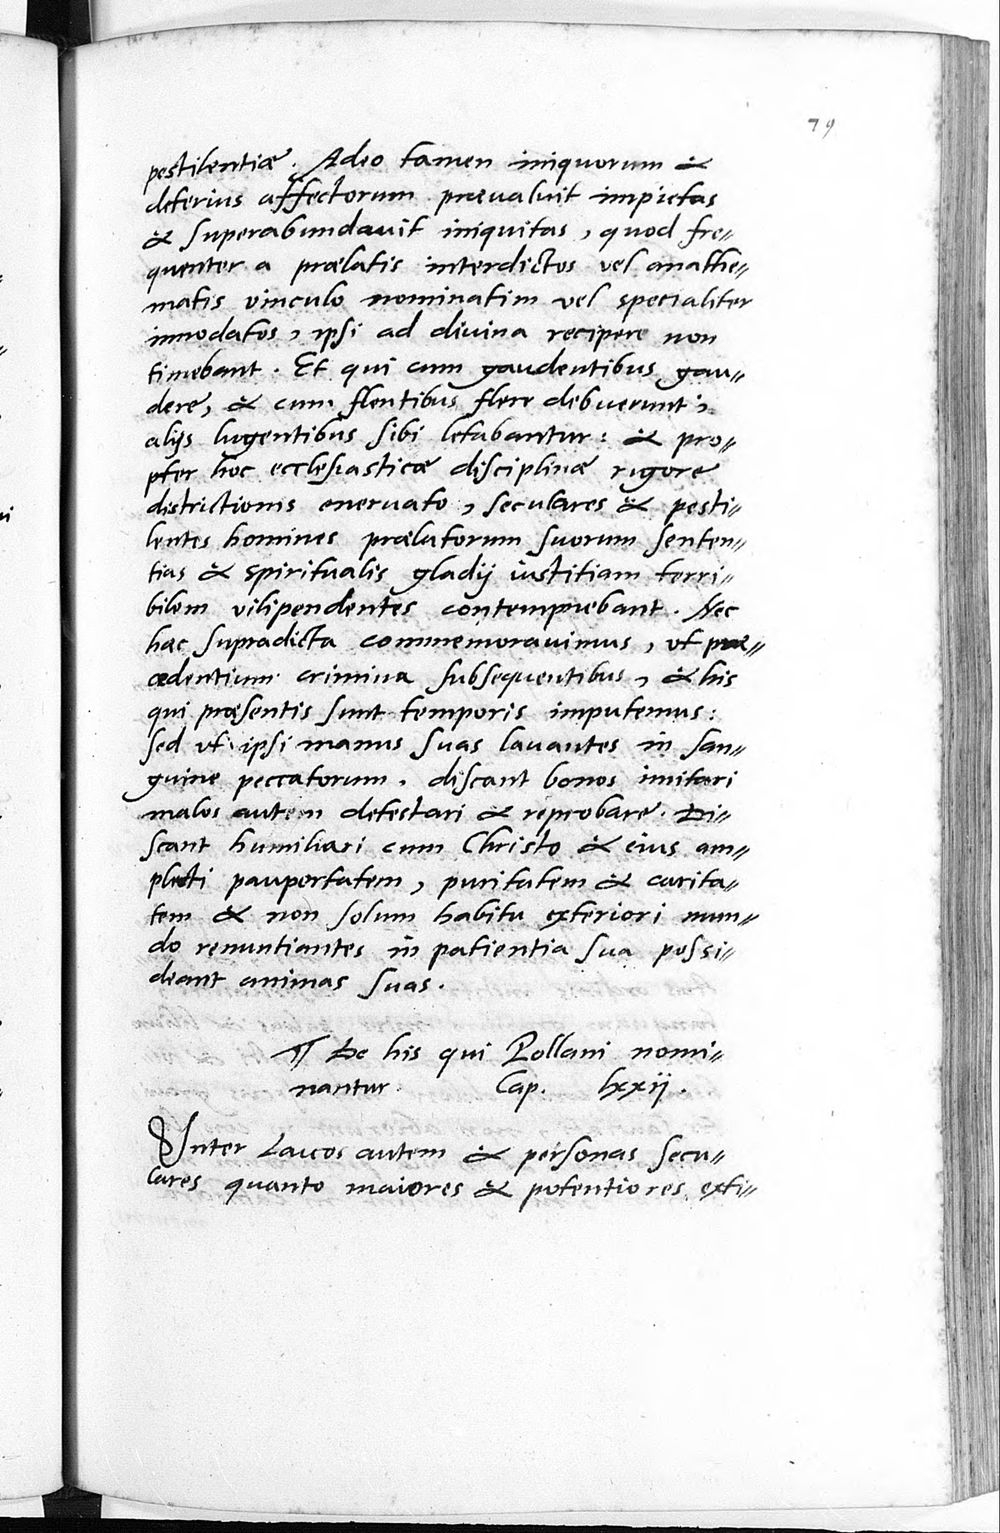 79
pestilentiæ. Adeo tamen iniquorum &
deterius affectorum præualuit impietas
& superabundauit iniquitas, quod fre„
quenter a prælatis interdictos vel anathe„
matis vinculo nominatim vel specialiter
innodatos, ipsi ad diuina recipere non
timebant. Et qui cum gaudentibus gau„
dere, & cum flentibus flere debuerunt;
alijs lugentibus sibi letabantur: & pro„
pter hoc ecclesiasticæ disciplinæ rigore
districtionis eneruato, seculares & pesti„
lentes homines prælatorum suorum senten„
tias & spiritualis gladij iustitiam terri„
bilem vilipendentes contemnebant. Nec
hæc supradicta commemorauimus, vt præ„
cedentium crimina subsequentibus, & his
qui præsentis sunt temporis imputemus:
sed vt ipsi manus suas lauantes in san„
guine peccatorum, discant bonos imitari
malos autem detestari & reprobare. Di„
scant humiliari cum Christo & eius am„
plecti paupertatem, puritatem & carita„
tem & non solum habitu exteriori mun„
do renuntiantes in patientia sua possi„
deant animas suas.
¶ De his qui Pollani nomi„
nantur. Cap. lxxij.
Inter Laicos autem & personas secu„
lares quanto maiores & potentiores exti„